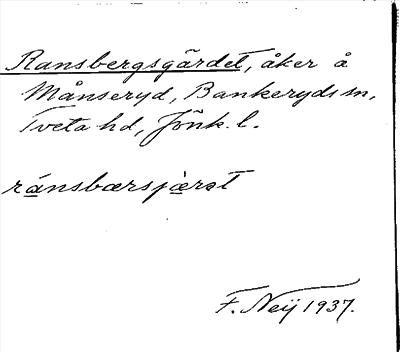 Ransbergsgärdet, åker å
Månseryd, Bankeryds sn,
Tveta hd, Jönk. l.
ránsbærsjæ̀rət
F. Neij 1937.